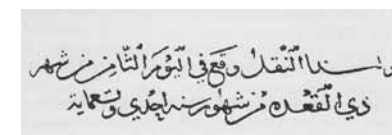 النقل وقع في اليوم الثامن من شهر
ذي القعده من شهور سنه احدي وتسعماية